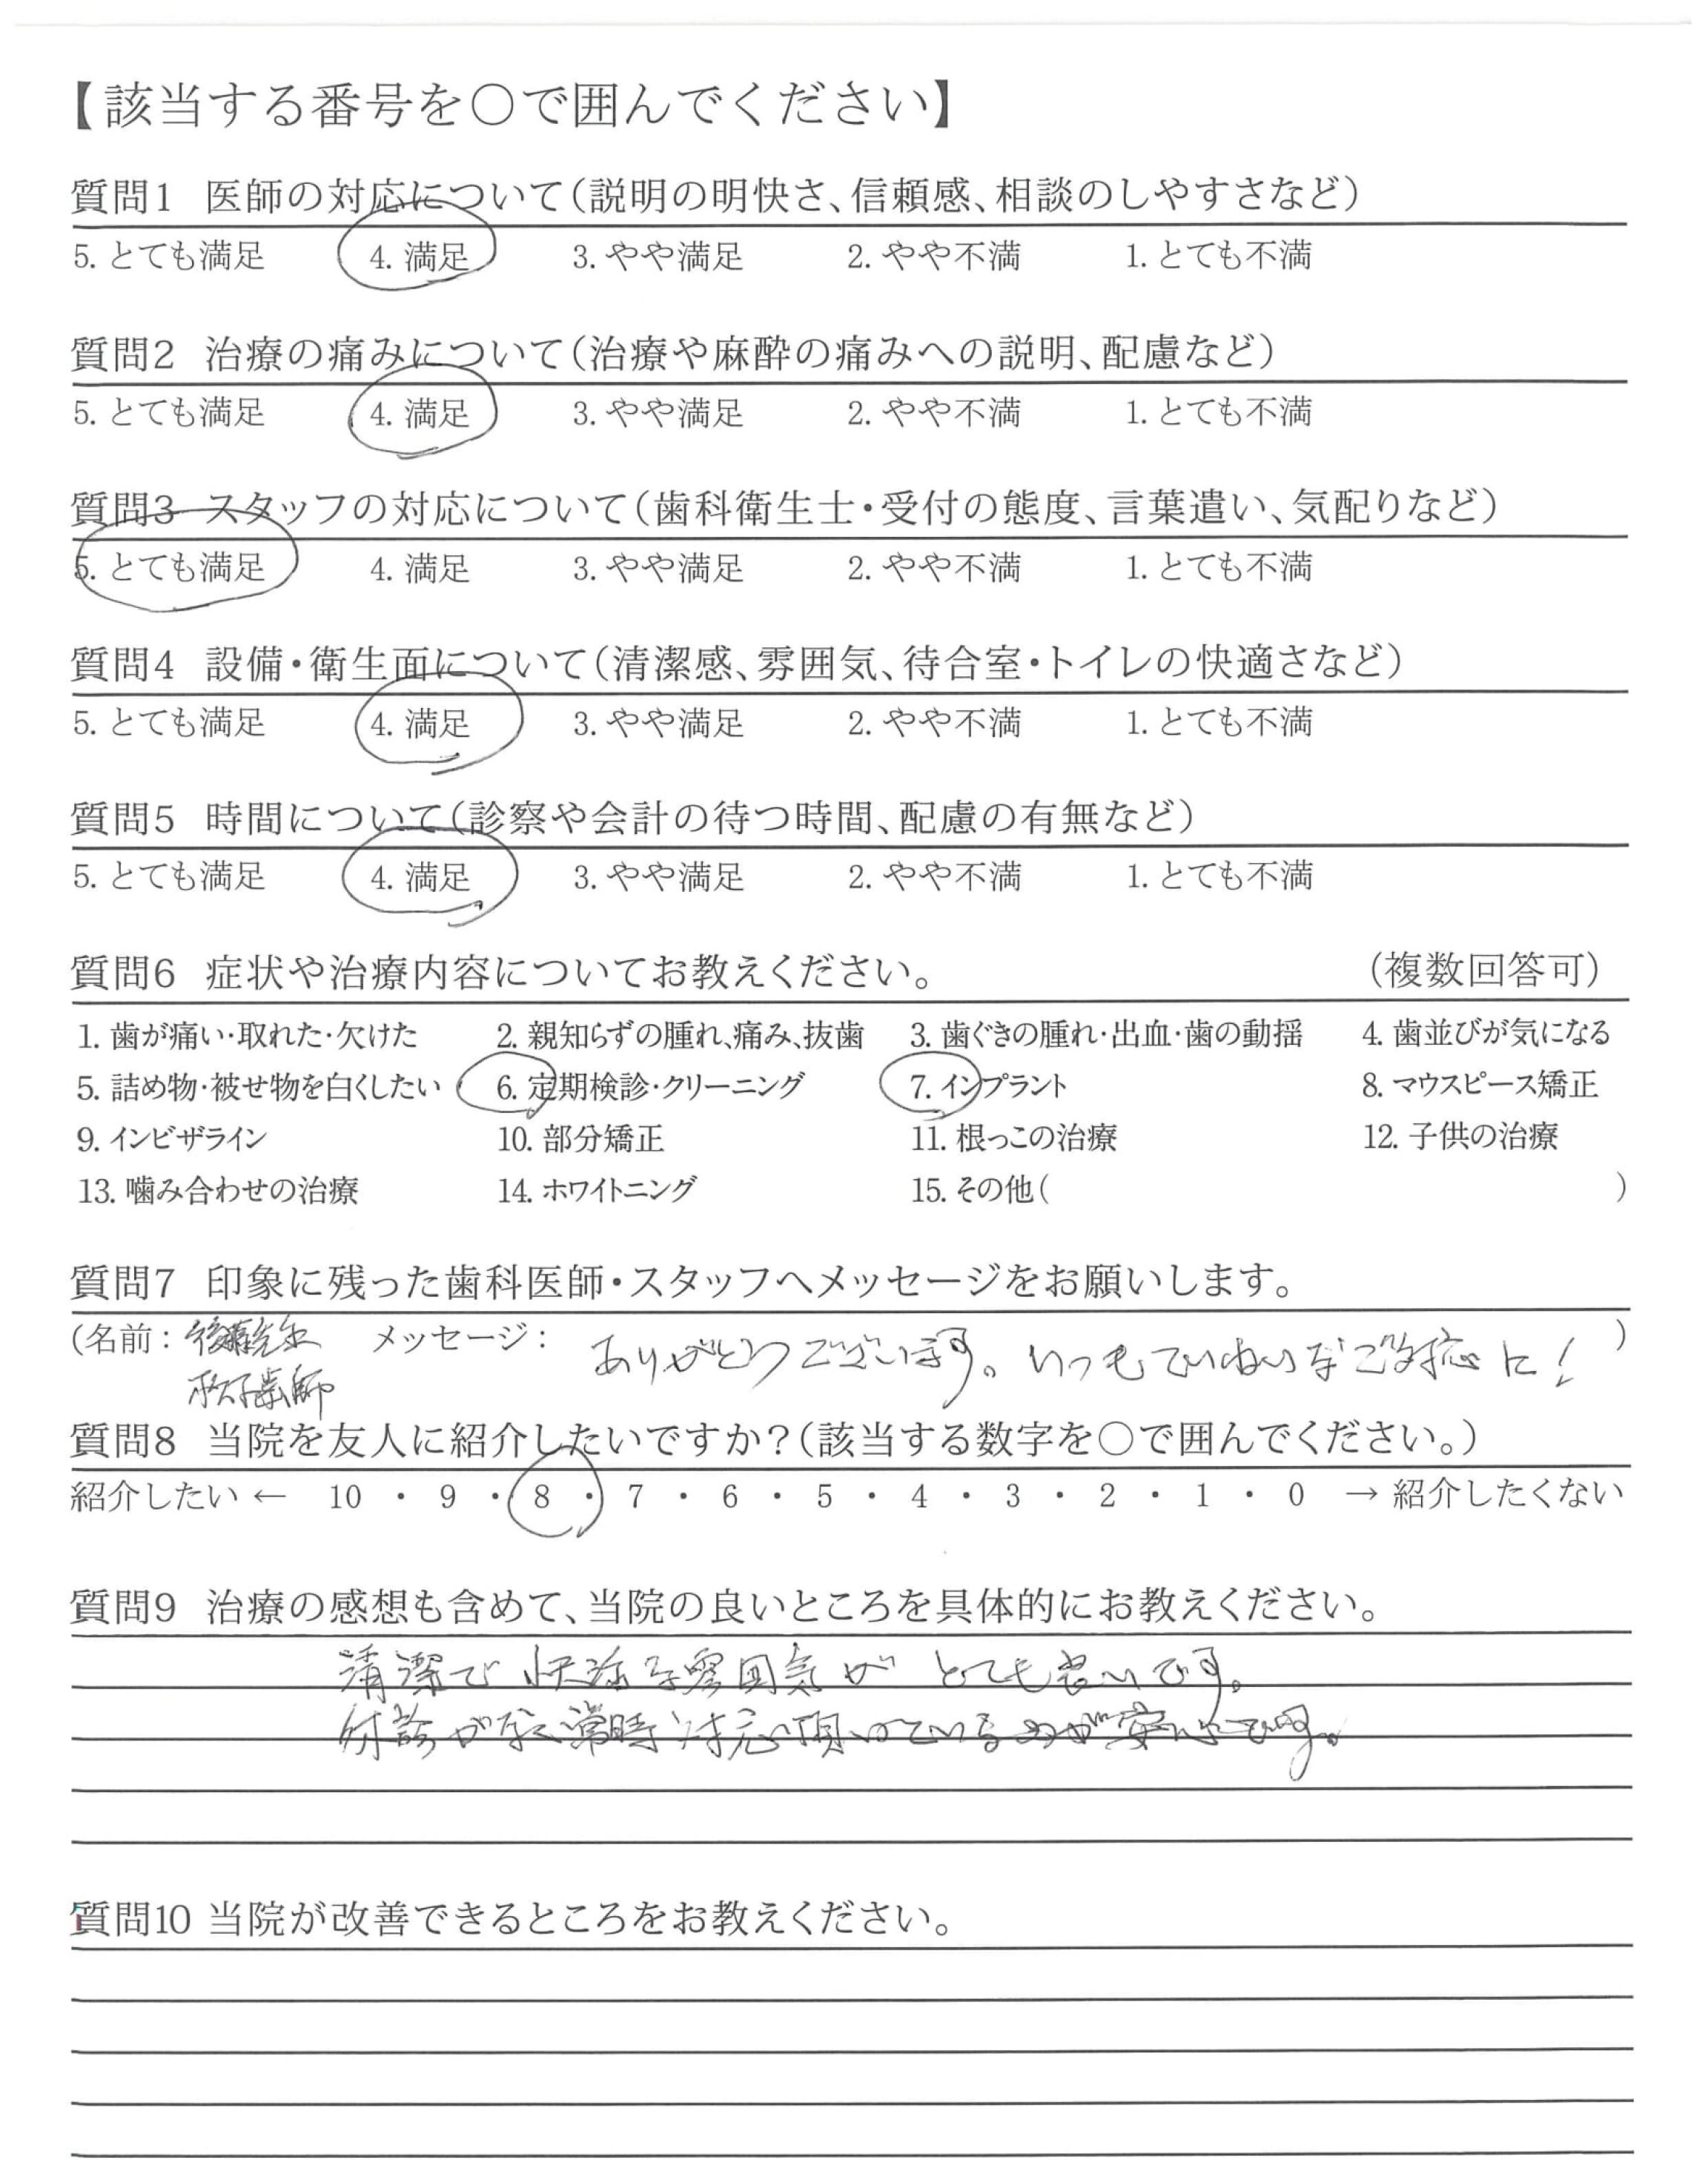 【該当する番号を○で囲んでください】
質問1 医師の対応について（説明の明快さ、信頼感、相談のしやすさなど）
5. とても満足 4. 満足 3. やや満足 2. やや不満 1. とても不満
質問2 治療の痛みについて（治療や麻酔の痛みへの説明、配慮など）
5. とても満足 4. 満足 3. やや満足 2. やや不満 1. とても不満
質問3 スタッフの対応について（歯科衛生士・受付の態度、言葉遣い、気配りなど）
5. とても満足 4. 満足 3. やや満足 2. やや不満 1. とても不満
質問4 設備・衛生面について（清潔感、雰囲気、待合室・トイレの快適さなど）
5. とても満足 4. 満足 3. やや満足 2. やや不満 1. とても不満
質問5 時間について（診察や会計の待つ時間、配慮の有無など）
5. とても満足 4. 満足 3. やや満足 2. やや不満 1. とても不満
質問6 症状や治療内容についてお教えください。 （複数回答可）
1. 歯が痛い・取れた・欠けた 2. 親知らずの腫れ、痛み、抜歯 3. 歯ぐきの腫れ・出血・歯の動揺 4. 歯並びが気になる
5. 詰め物・被せ物を白くしたい 6. 定期検診・クリーニング 7. インプラント 8. マウスピース矯正
9. インビザライン 10. 部分矯正 11. 根っこの治療 12. 子供の治療
13. 噛み合わせの治療 14. ホワイトニング 15. その他（ ）
質問7 印象に残った歯科医師・スタッフへメッセージをお願いします。
（名前： 後藤先生 メッセージ： ありがとうございます。いつもていねいなご対応に！ ）
質問8 当院を友人に紹介したいですか？（該当する数字を○で囲んでください。）
紹介したい ← 10 ・ 9 ・ 8 ・ 7 ・ 6 ・ 5 ・ 4 ・ 3 ・ 2 ・ 1 ・ 0 → 紹介したくない
質問9 治療の感想も含めて、当院の良いところを具体的にお教えください。
清潔で快適な雰囲気がとても良いです。
休診がなく常時対応頂いているのが安心です。
質問10 当院が改善できるところをお教えください。